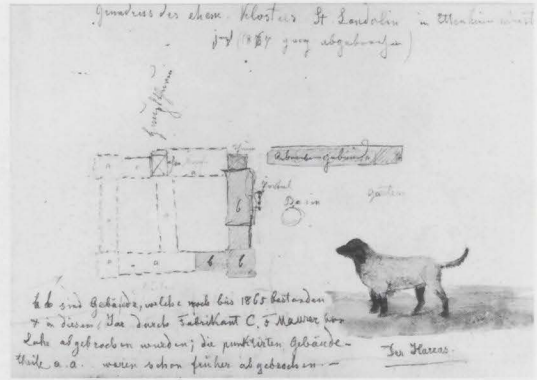 Grundriss des ehem. Klosters St. Landolin in Ettenheimmünster
jetzt (1867 ganz abgebrochen)
Ökonomiegebäude
Portal
Basin
Garten
a a
b
a a
b b
b b sind Gebäude, welche noch bis 1865 bestanden
& in diesem Jar durch Fabrikant C. F. Maurer von
Lahr abgebrochen wurden; die punktirten Gebäude-
theile a.a. waren schon früher abgebrochen. —